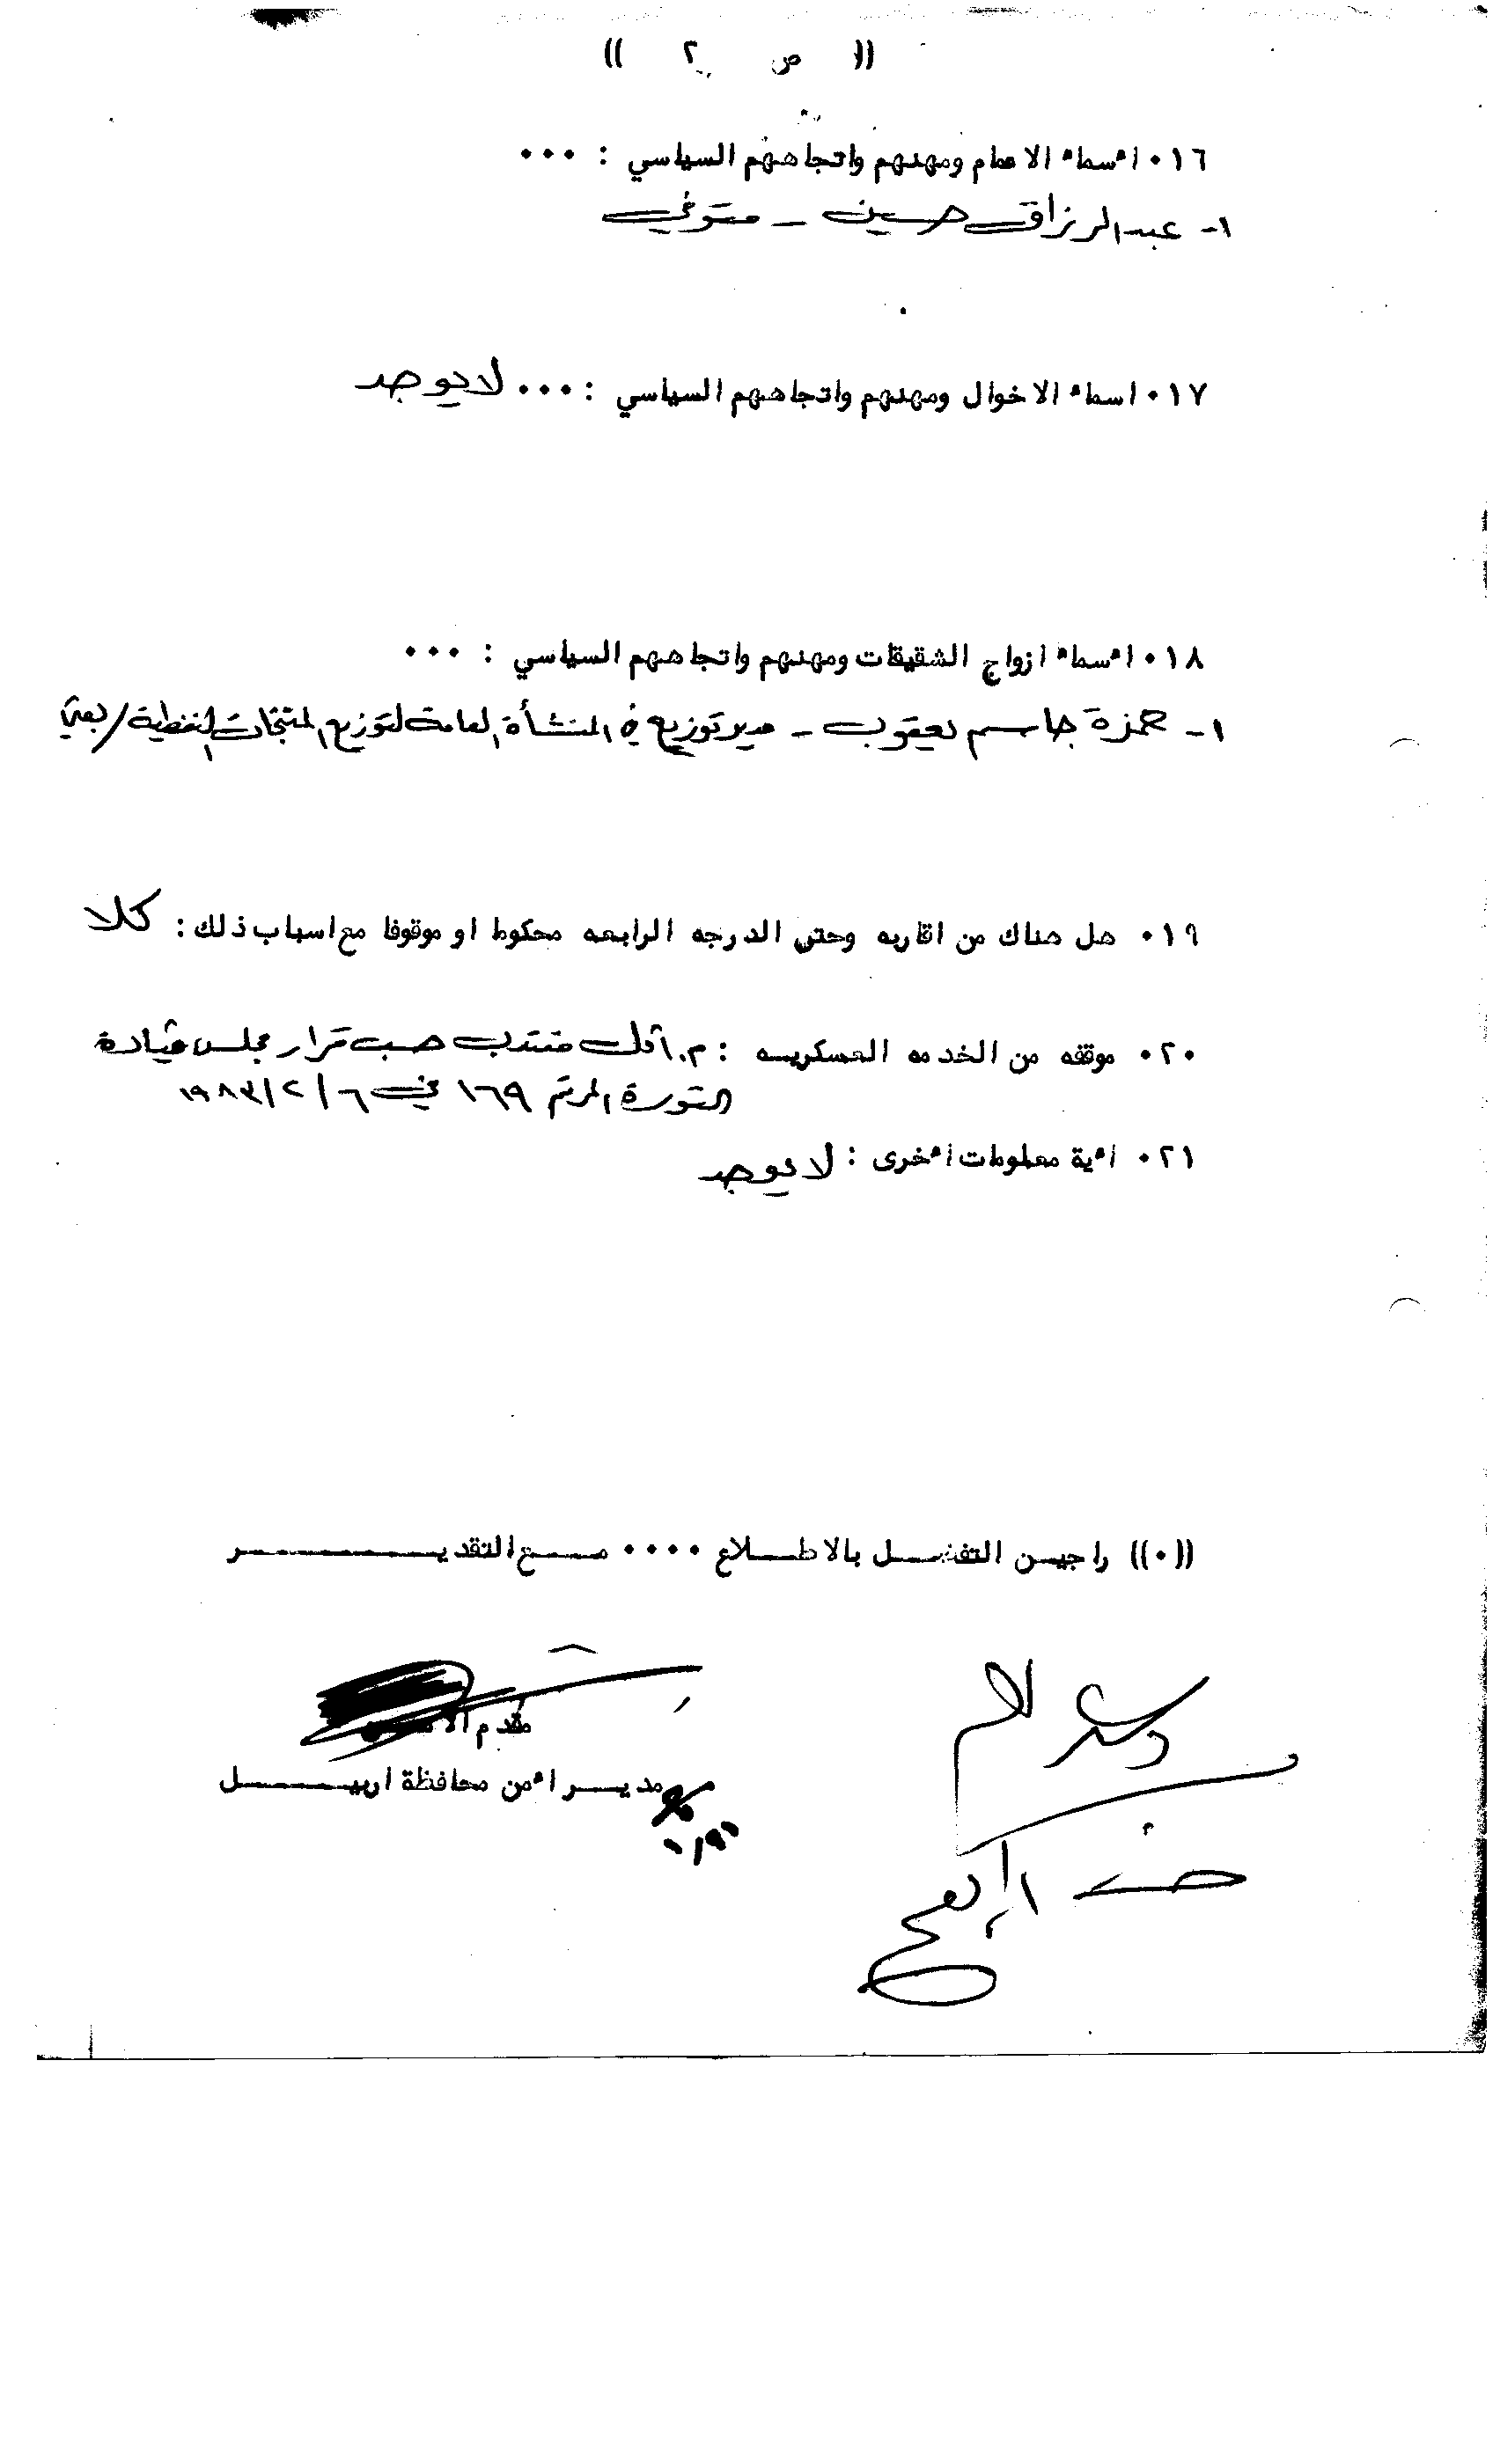 (( ص ٢ ))
١٦٠ اسماء الاعمام ومهنهم واتجاههم السياسي : ٠٠٠
١- عبدالرزاق حسين - متوفي
١٧٠ اسماء الاخوال ومهنهم واتجاههم السياسي : ٠٠٠ لا يوجد
١٨٠ اسماء ازواج الشقيقات ومهنهم واتجاههم السياسي : ٠٠٠
١- حمزة جاسم يعقوب - مدير توزيع في المنشأة العامة لتوزيع المنتجات النفطية / بعثي
١٩٠ هل هناك من اقاربه وحتى الدرجه الرابعه محكوما او موقوفا مع اسباب ذلك : كلا
٢٠٠ موقفه من الخدمه العسكريه : م. منتدب حسب قرار مجلس قيادة
الثورة المرقم ١٦٩ في ٦/٢/١٩٨٣
٢١٠ اية معلومات اخرى : لا يوجد
((٠)) راجيــن التفضــل بالاطــلاع ٠٠٠٠ مــع التقديــــــر
مقدم الامن
مديــر امن محافظة اربيــــل